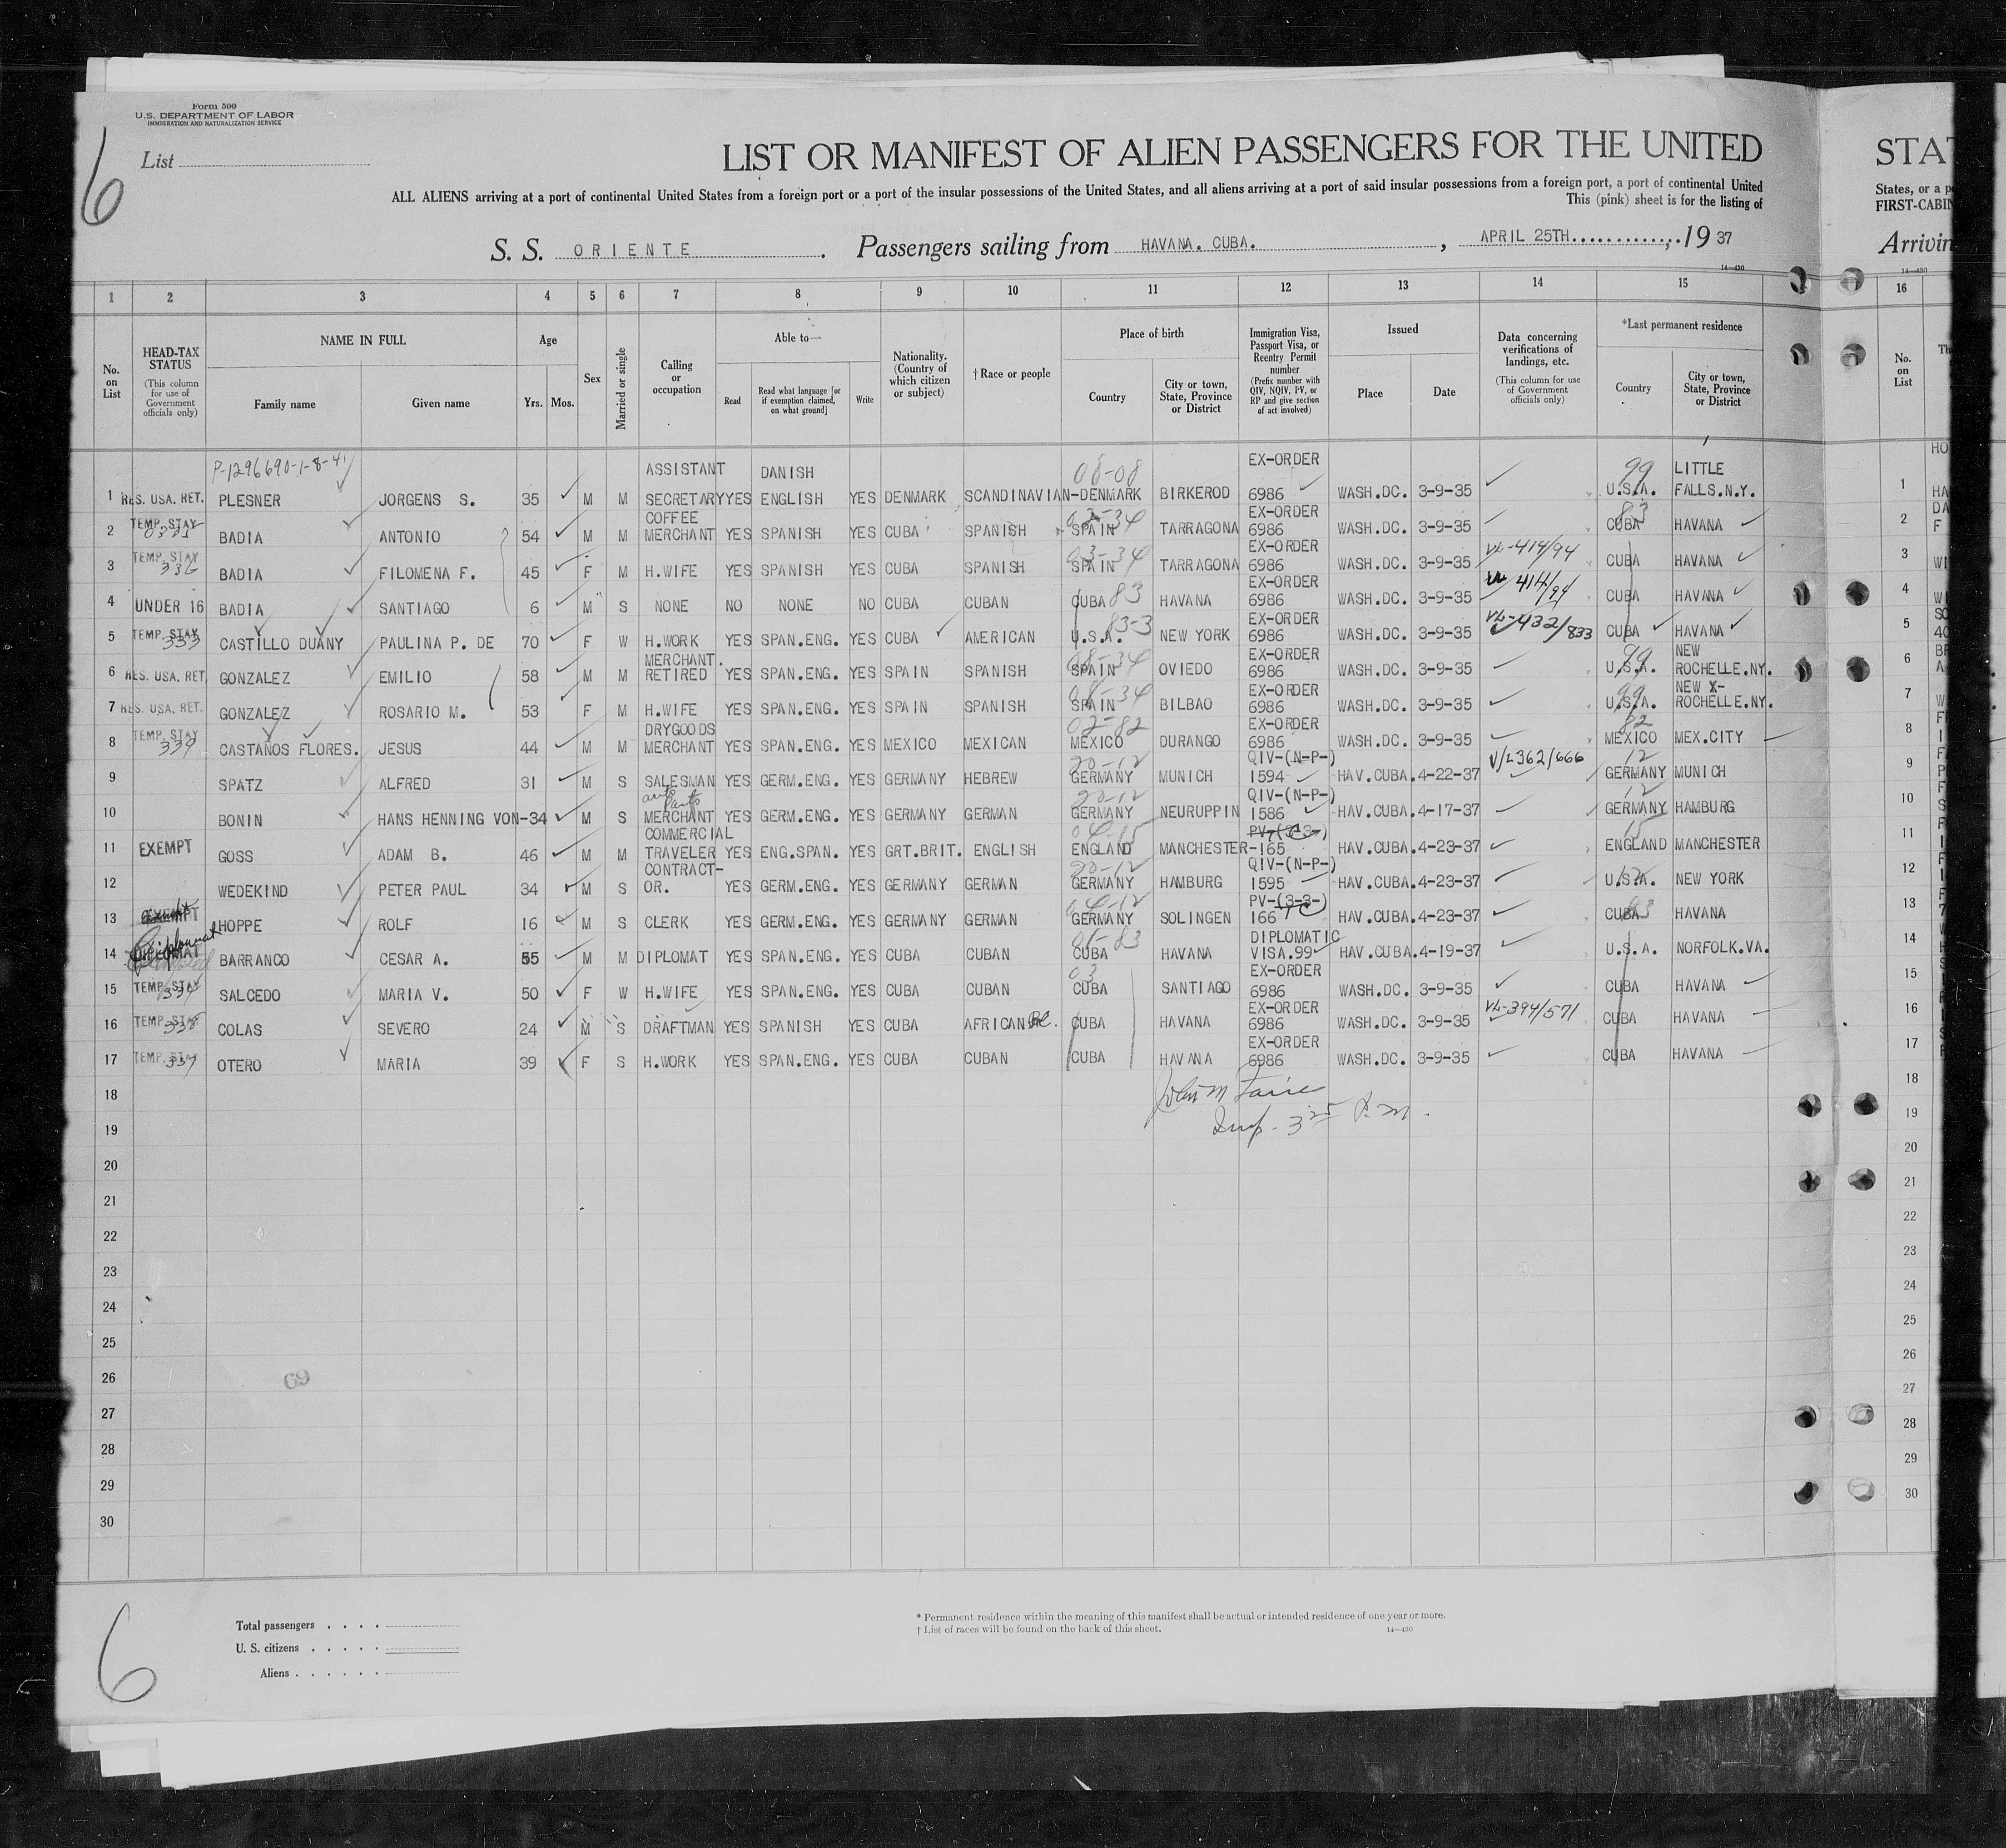 Form 500
U.S. DEPARTMENT OF LABOR
IMMIGRATION AND NATURALIZATION SERVICE
6
List
LIST OR MANIFEST OF ALIEN PASSENGERS FOR THE UNITED
STA
ALL ALIENS arriving at a port of continental United States from a foreign port or a port of the insular possessions of the United States, and all aliens arriving at a port of said insular possessions from a foreign port, a port of continental United
States, or a p
This (pink) sheet is for the listing of
FIRST-CABIN
S. S. ORIENTE . Passengers sailing from HAVANA. CUBA. , APRIL 25TH , 19 37
Arrivin
14-430
14-430
1 2 3 4 5 6 7 8 9 10 11 12 13 14 15 16
No. on List
HEAD-TAX STATUS (This column for use of Government officials only)
NAME IN FULL
Family name Given name
Age
Yrs. Mos.
Sex
Married or single
Calling or occupation
Able to—
Read Read what language [or if exemption claimed, on what ground] Write
Nationality. (Country of which citizen or subject)
† Race or people
Place of birth
Country City or town, State, Province or District
Immigration Visa, Passport Visa, or Reentry Permit number (Prefix number with QIV, NQIV, PV, or RP and give section of act involved)
Issued
Place Date
Data concerning verifications of landings, etc. (This column for use of Government officials only)
*Last permanent residence
Country City or town, State, Province or District
No. on List
P-1296690-1-8-41
1 RES. USA. RET. PLESNER JORGENS S. 35 M M ASSISTANT SECRETARY YES DANISH ENGLISH YES DENMARK SCANDINAVIAN 08-08 DENMARK BIRKEROD EX-ORDER 6986 WASH.DC. 3-9-35 99 U.S.A. LITTLE FALLS.N.Y. 1
2 TEMP. STAY BADIA ANTONIO 54 M M COFFEE MERCHANT YES SPANISH YES CUBA SPANISH 03-34 SPAIN TARRAGONA EX-ORDER 6986 WASH.DC. 3-9-35 83 CUBA HAVANA 2
3 TEMP. STAY 336 BADIA FILOMENA F. 45 F M H.WIFE YES SPANISH YES CUBA SPANISH 03-34 SPAIN TARRAGONA EX-ORDER 6986 WASH.DC. 3-9-35 VL-414/94 CUBA HAVANA 3
4 UNDER 16 BADIA SANTIAGO 6 M S NONE NO NONE NO CUBA CUBAN CUBA 83 HAVANA EX-ORDER 6986 WASH.DC. 3-9-35 414/94 CUBA HAVANA 4
5 TEMP. STAY 333 CASTILLO DUANY PAULINA P. DE 70 F W H.WORK YES SPAN.ENG. YES CUBA AMERICAN 83-3 U.S.A. NEW YORK EX-ORDER 6986 WASH.DC. 3-9-35 VL-432/833 CUBA HAVANA 5
6 RES. USA. RET. GONZALEZ EMILIO 58 M M MERCHANT. RETIRED YES SPAN.ENG. YES SPAIN SPANISH 08-34 SPAIN OVIEDO EX-ORDER 6986 WASH.DC. 3-9-35 99 U.S.A. NEW ROCHELLE.NY. 6
7 RES. USA. RET. GONZALEZ ROSARIO M. 53 F M H.WIFE YES SPAN.ENG. YES SPAIN SPANISH 08-34 SPAIN BILBAO EX-ORDER 6986 WASH.DC. 3-9-35 99 U.S.A. NEW X- ROCHELLE.NY. 7
8 TEMP. STAY 339 CASTAÑOS FLORES. JESUS 44 M M DRYGOODS MERCHANT YES SPAN.ENG. YES MEXICO MEXICAN 02-82 MEXICO DURANGO EX-ORDER 6986 WASH.DC. 3-9-35 82 MEXICO MEX.CITY 8
9 SPATZ ALFRED 31 M S SALESMAN YES GERM.ENG. YES GERMANY HEBREW 20-12 GERMANY MUNICH QIV-(N-P-) 1594 HAV.CUBA. 4-22-37 V/L362/666 12 GERMANY MUNICH 9
10 BONIN HANS HENNING VON- 34 M S auto parts MERCHANT YES GERM.ENG. YES GERMANY GERMAN 20-12 GERMANY NEURUPPIN QIV-(N-P-) 1586 HAV.CUBA. 4-17-37 12 GERMANY HAMBURG 10
11 EXEMPT GOSS ADAM B. 46 M M COMMERCIAL TRAVELER YES ENG.SPAN. YES GRT.BRIT. ENGLISH 04-15 ENGLAND MANCHESTER PV-(3-3-) -165 HAV.CUBA. 4-23-37 15 ENGLAND MANCHESTER 11
12 WEDEKIND PETER PAUL 34 M S CONTRACT-OR. YES GERM.ENG. YES GERMANY GERMAN 20-12 GERMANY HAMBURG QIV-(N-P-) 1595 HAV.CUBA. 4-23-37 U.S.A. NEW YORK 12
13 EXEMPT HOPPE ROLF 16 M S CLERK YES GERM.ENG. YES GERMANY GERMAN 04-12 GERMANY SOLINGEN PV-(3-3-) 166 HAV.CUBA. 4-23-37 CUBA 83 HAVANA 13
14 Diplomat BARRANCO CESAR A. 55 M M DIPLOMAT YES SPAN.ENG. YES CUBA CUBAN 01-83 CUBA HAVANA DIPLOMATIC VISA.99 HAV.CUBA. 4-19-37 U.S.A. NORFOLK.VA. 14
15 TEMP. STAY SALCEDO MARIA V. 50 F W H.WIFE YES SPAN.ENG. YES CUBA CUBAN 03 CUBA SANTIAGO EX-ORDER 6986 WASH.DC. 3-9-35 CUBA HAVANA 15
16 TEMP. STAY 338 COLAS SEVERO 24 M S DRAFTMAN YES SPANISH YES CUBA AFRICAN Bl. CUBA HAVANA EX-ORDER 6986 WASH.DC. 3-9-35 VL-394/571 CUBA HAVANA 16
17 TEMP. STAY 337 OTERO MARIA 39 F S H.WORK YES SPAN.ENG. YES CUBA CUBAN CUBA HAVANA EX-ORDER 6986 WASH.DC. 3-9-35 CUBA HAVANA 17
18 18
19 Insp. 3 25 P. M. 19
20 20
21 21
22 22
23 23
24 24
25 25
26 69 26
27 27
28 28
29 29
30 30
6
Total passengers
U. S. citizens
Aliens
* Permanent residence within the meaning of this manifest shall be actual or intended residence of one year or more.
† List of races will be found on the back of this sheet.
14-430